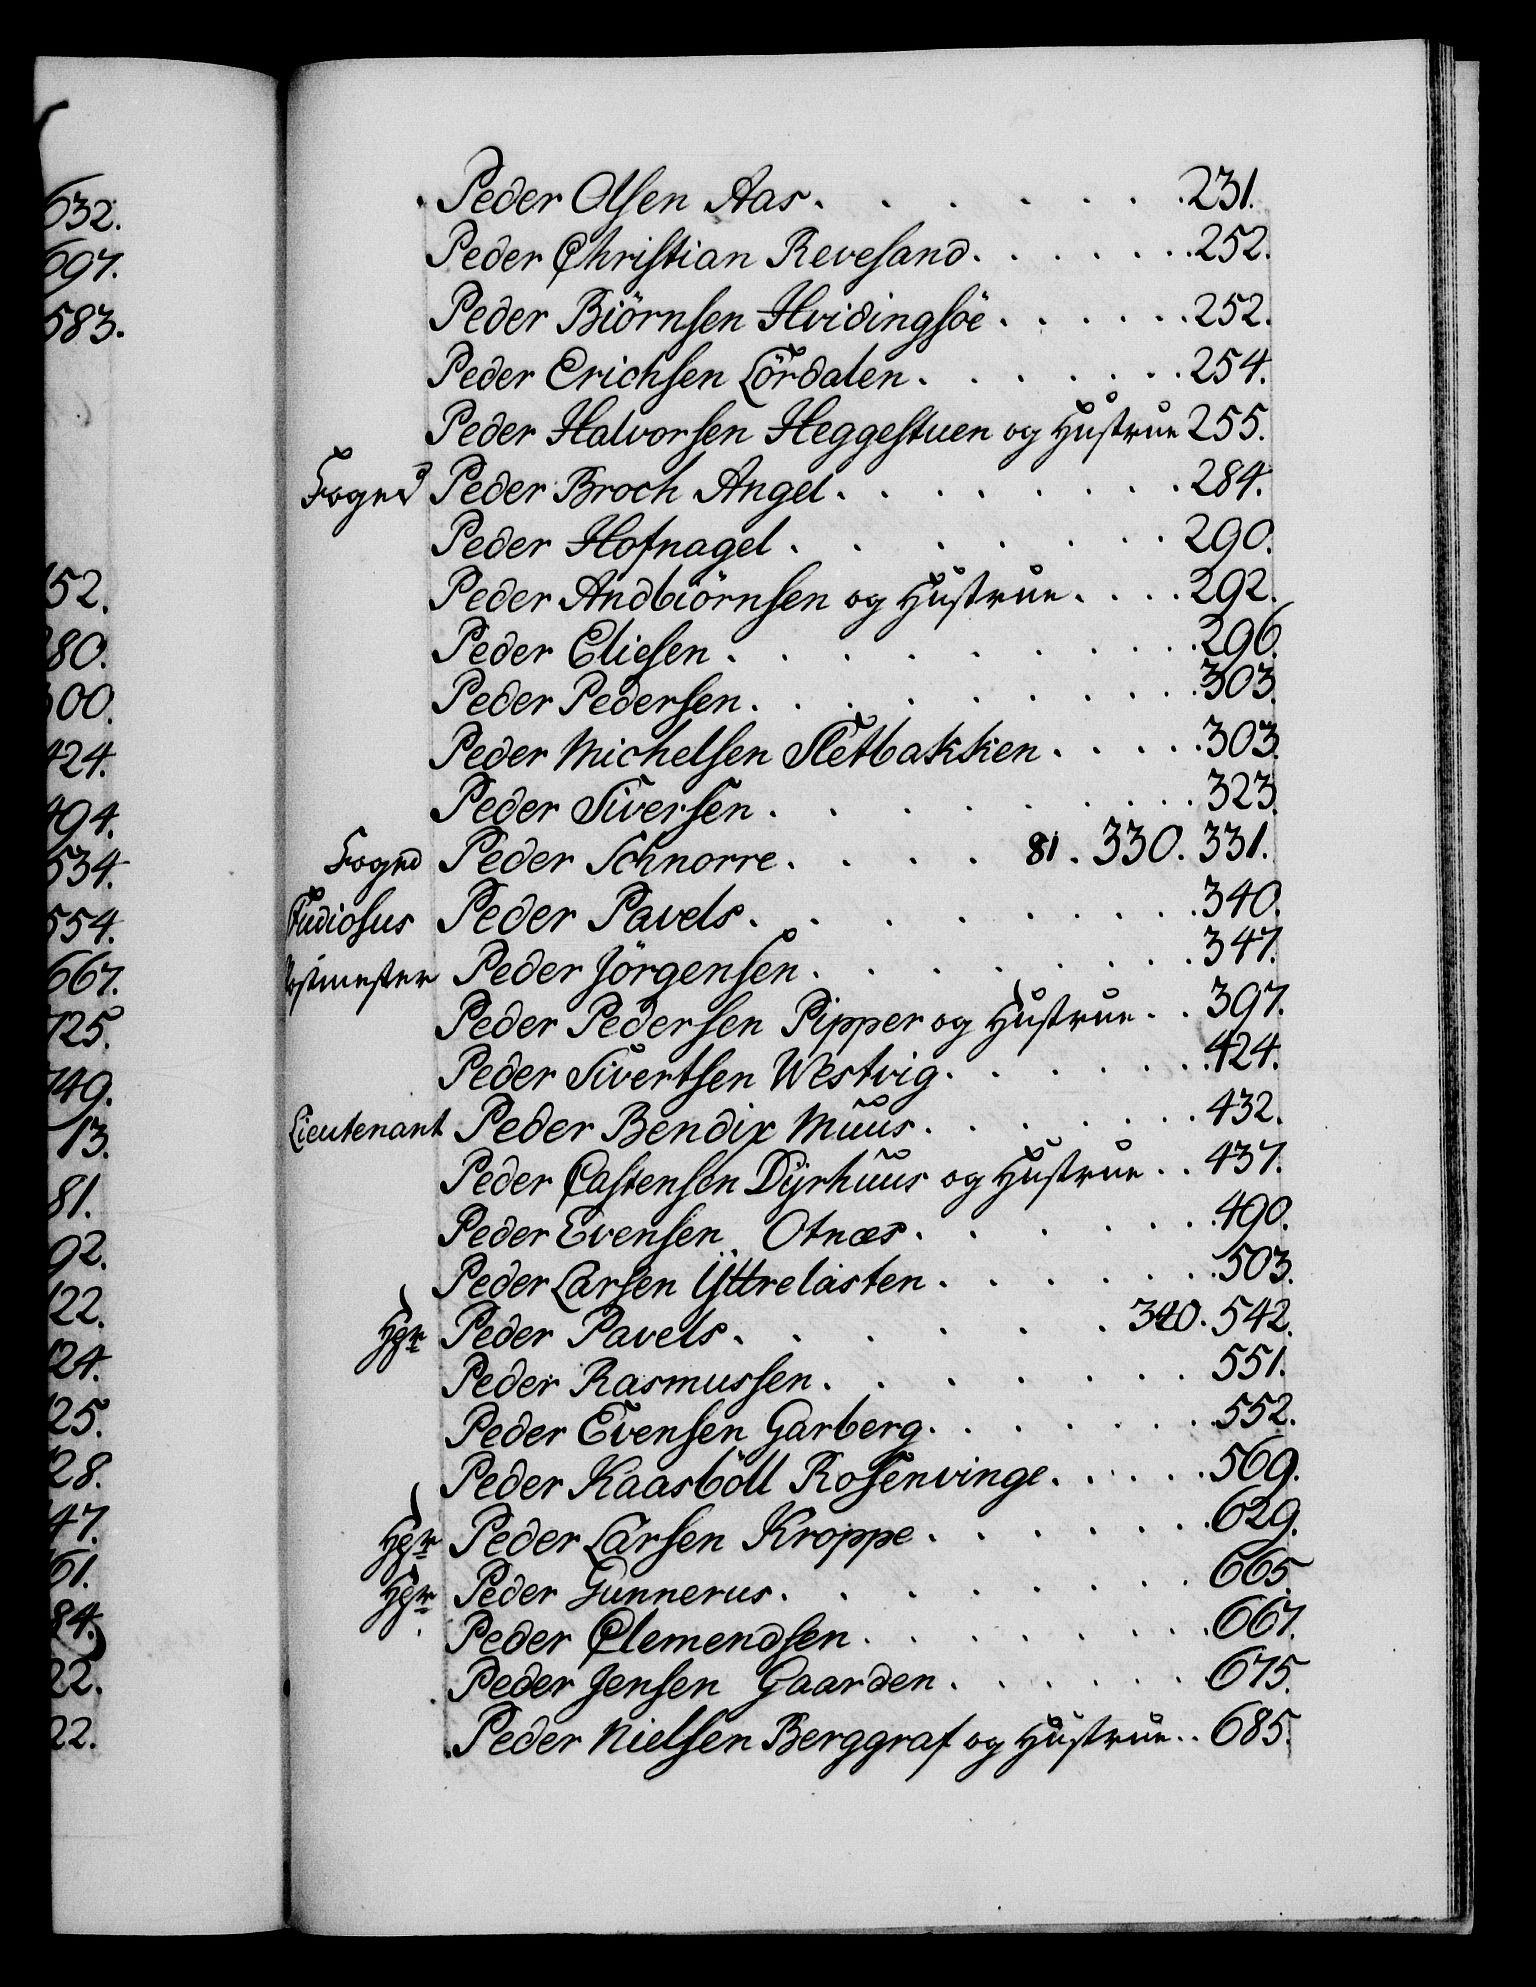 632.
697.
583.
52.
80.
00.
424.
494.
534.
554.
667.
725.
749.
13.
81.
92.
22.
24.
25.
28.
47.
61.
84.
22.
22.
Peder Olsen Aas. . . . . . . 231.
Peder Christian Revesand. . . . . . . 252.
Peder Biörnsen Hvidingsöe . . . . . . 252.
Peder Erichsen Lördalen. . . . . . . 254.
Peder Halvorsen Heggestuen og Hustrue 255.
Foged Peder Broch Angel. . . . . . . . 284.
Peder Hofnagel . . . . . . . 290.
Peder Andbiörnsen og Hustrue. . . . 292.
Peder Eliesen . . . . . . . . 296.
Peder Pedersen. . . . . . . . 303.
Peder Michelsen Sletbakken. . . . . 303.
Peder Siversen . . . . . . . . 323.
Foged Peder Schnorre. . . . 81. 330. 331.
Studiosus Peder Pavels. . . . . . . . 340.
Postmester Peder Jörgensen. . . . . . . 347.
Peder Pedersen Pipper og Hustrue. . 397.
Peder Sivertsen Westvig. . . . . . . 424.
Lieutenant Peder Bendix Muus. . . . . . . 432.
Peder Castensen Dyrhuus og Hustrue. . 437.
Peder Evensen Otnæs. . . . . . . 490.
Peder Larsen Yttrelasten. . . . . . . 503.
Hgr Peder Pavels. . . . . . 340. 542.
Peder Rasmussen. . . . . . . . 551.
Peder Evensen Garberg. . . . . . . 552.
Peder Kaasböll Rosenvinge. . . . . . 569.
Hgr Peder Larsen Kroppe. . . . . . . 629.
Hgr Peder Gunnerus. . . . . . . . 665.
Peder Clemendsen. . . . . . . 667.
Peder Jensen Gaarden. . . . . . 675.
Peder Nielsen Berggraf og Hustrue. . 685.